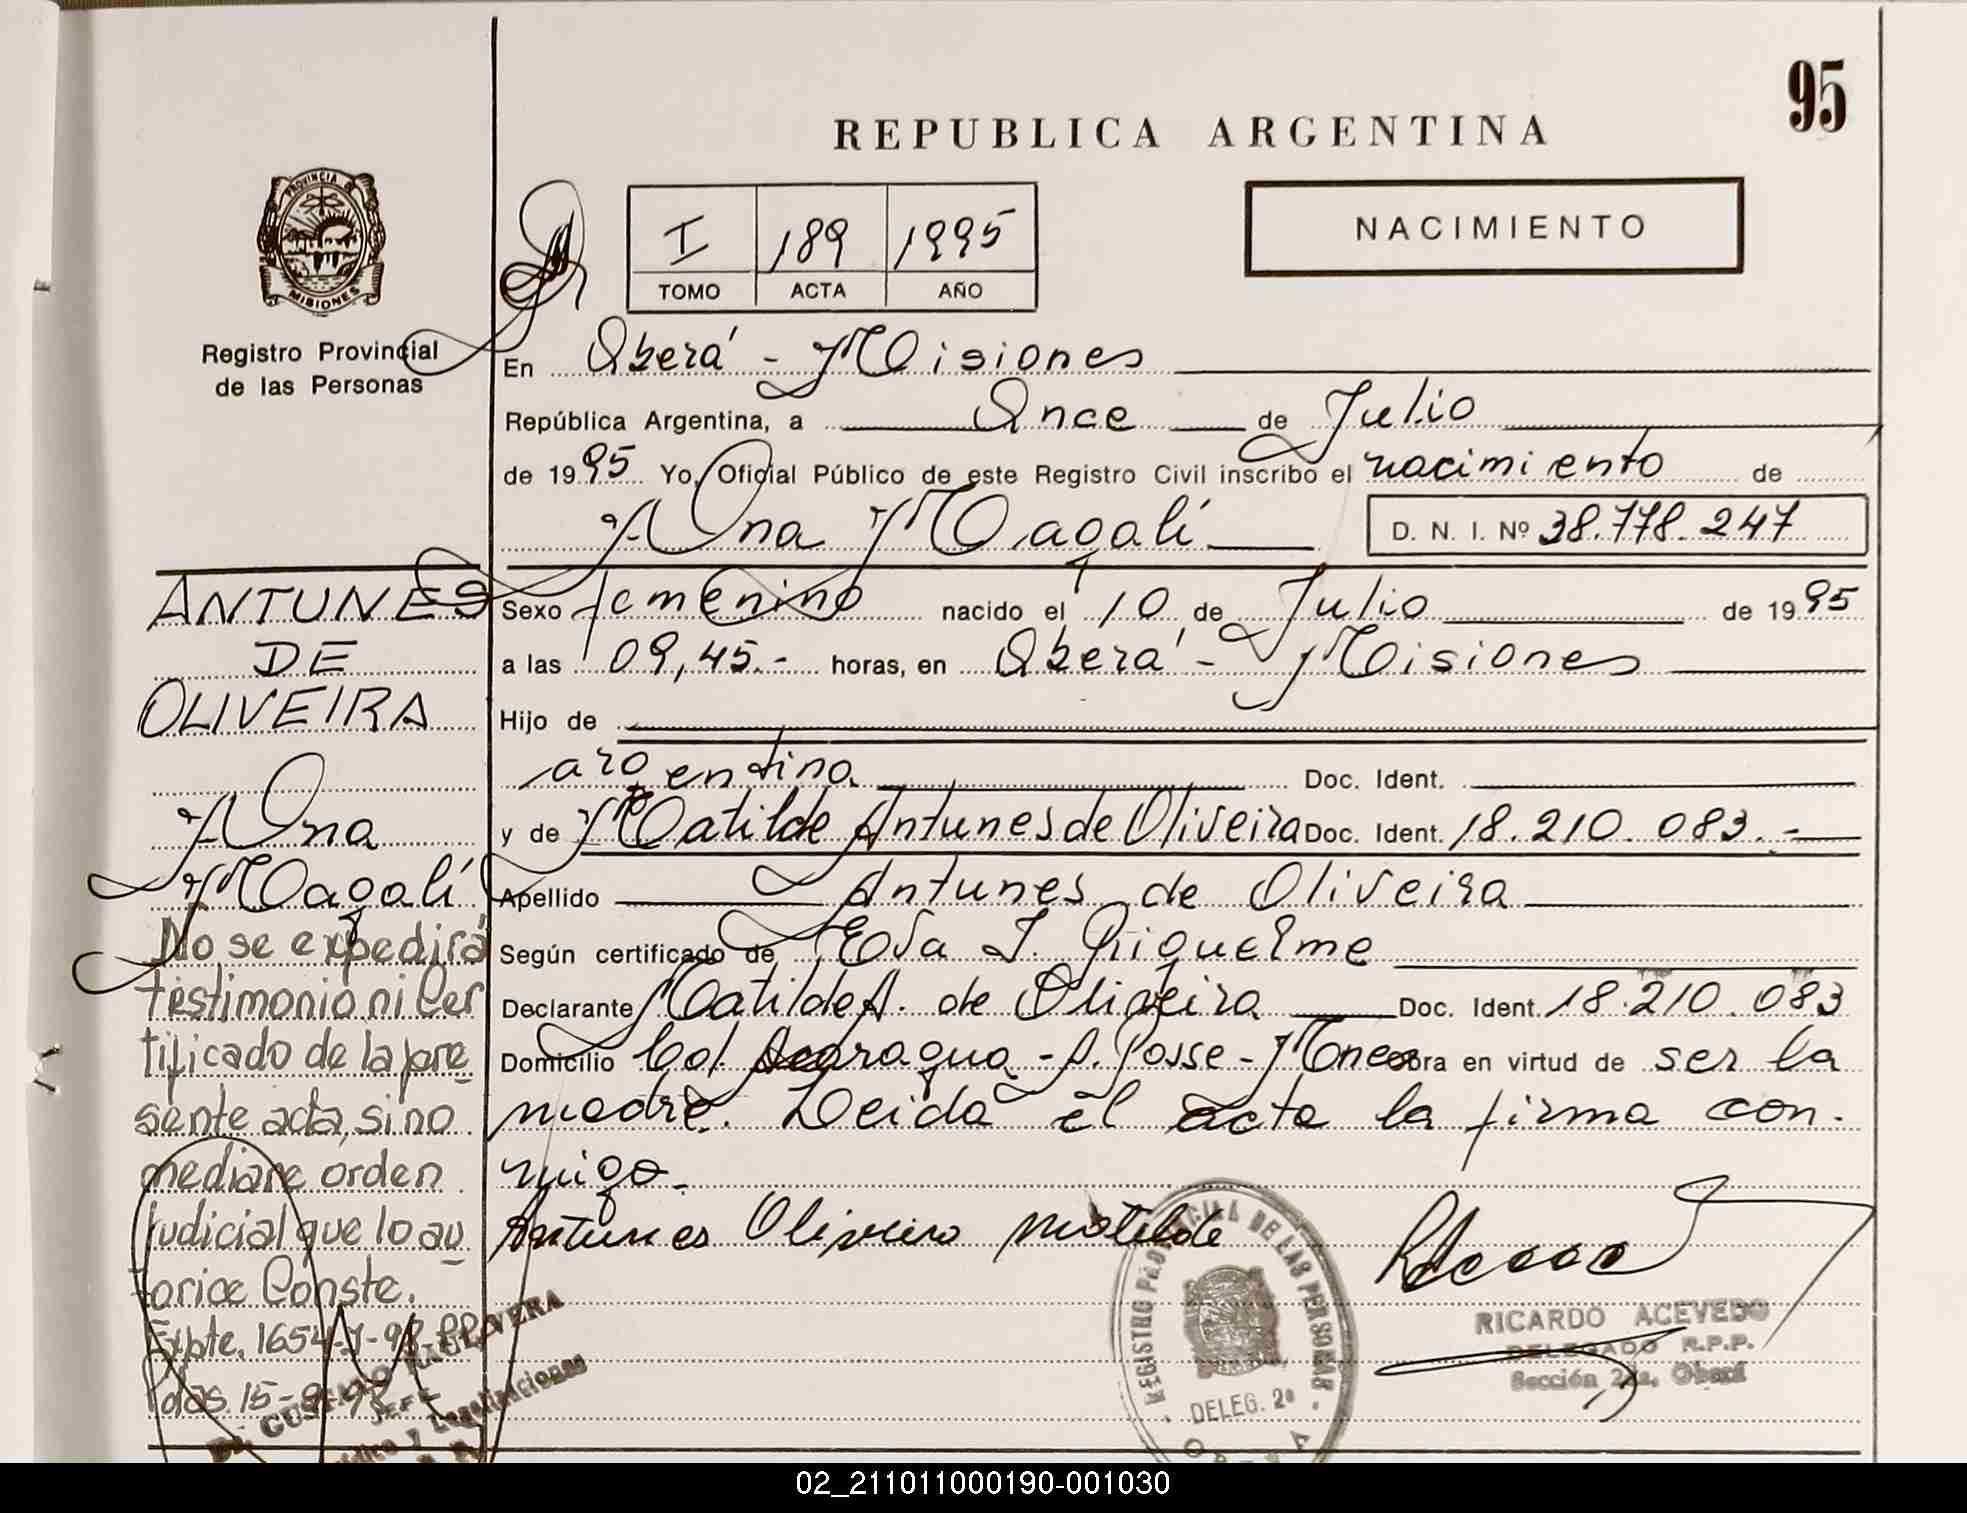 95
REPUBLICA ARGENTINA
PROVINCIA DE
MISIONES
Registro Provincial
de las Personas
I 189 1995
TOMO ACTA AÑO
NACIMIENTO
En Oberá - Misiones
República Argentina, a Once de Julio
de 1995 Yo, Oficial Público de este Registro Civil inscribo el nacimiento de
Ana Magalí D. N. I. Nº 38.778.247
Sexo femenino nacido el 10 de Julio de 1995
a las 09,45.- horas, en Oberá - Misiones
Hijo de
argentina Doc. Ident.
y de Matilde Antunes de Oliveira Doc. Ident. 18.210.083.-
Apellido Antunes de Oliveira
Según certificado de Eva I. Riquelme
Declarante Matilde A. de Oliveira Doc. Ident. 18.210.083
Domicilio Col. Acaragua - A. Posse - Mnes obra en virtud de ser la
madre. Leida el acta la firma con-
migo.
Antunes Oliveira Matilde
ANTUNES
DE
OLIVEIRA
Ana
Magalí
No se expedirá
testimonio ni Cer
tificado de la pre
sente acta, sino
mediane orden
Judicial que lo au
torice Conste.
Expte. 1654-
Pdas. 15-9-98
JEFE
y Legalizaciones
REGISTRO PROVINCIAL DE LAS PERSONAS
DELEG. 2ª
OBERA
RICARDO ACEVEDO
DELEGADO R.P.P.
Sección 2da, Oberá
02_211011000190-001030